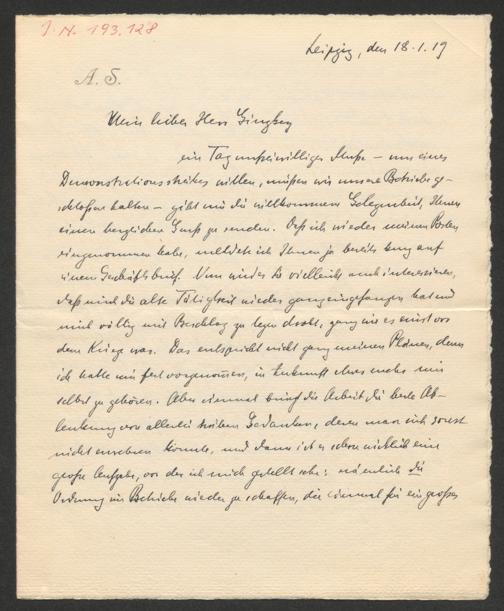 J. N. 193.128
Leipzig, den 18.1.19
A. S.
Mein lieber Herr Ginzkey
ein Tag unfreiwilliger Muße – um eines
Demonstrationsstreikes willen, müßen wir unsere Betriebe ge-
schloßen halten – gibt mir die willkommene Gelegenheit, Ihnen
einen herzlichen Gruß zu senden. Daß ich wieder meinen Posten
eingenommen habe, meldete ich Ihnen ja bereits kurz auf
einem Geschäftsbrief. Nun wird es Sie vielleicht auch interessieren,
daß mich die alte Tätigkeit wieder ganz eingefangen hat und
mich völlig mit Beschlag zu legen droht, ganz wie es einst vor
dem Kriege war. Das entspricht nicht ganz meinen Plänen, denn
ich hatte mir fest vorgenommen, in Zukunft etwas mehr mir
selbst zu gehören. Aber einmal bringt die Arbeit die beste Ab-
lenkung von allerlei trüben Gedanken, deren man sich sonst
nicht erwehren könnte, und dann ist es schon wirklich eine
große Aufgabe, vor die ich mich gestellt sehe: nämlich die
Ordnung im Betriebe wieder zu schaffen, die einmal für ein großes